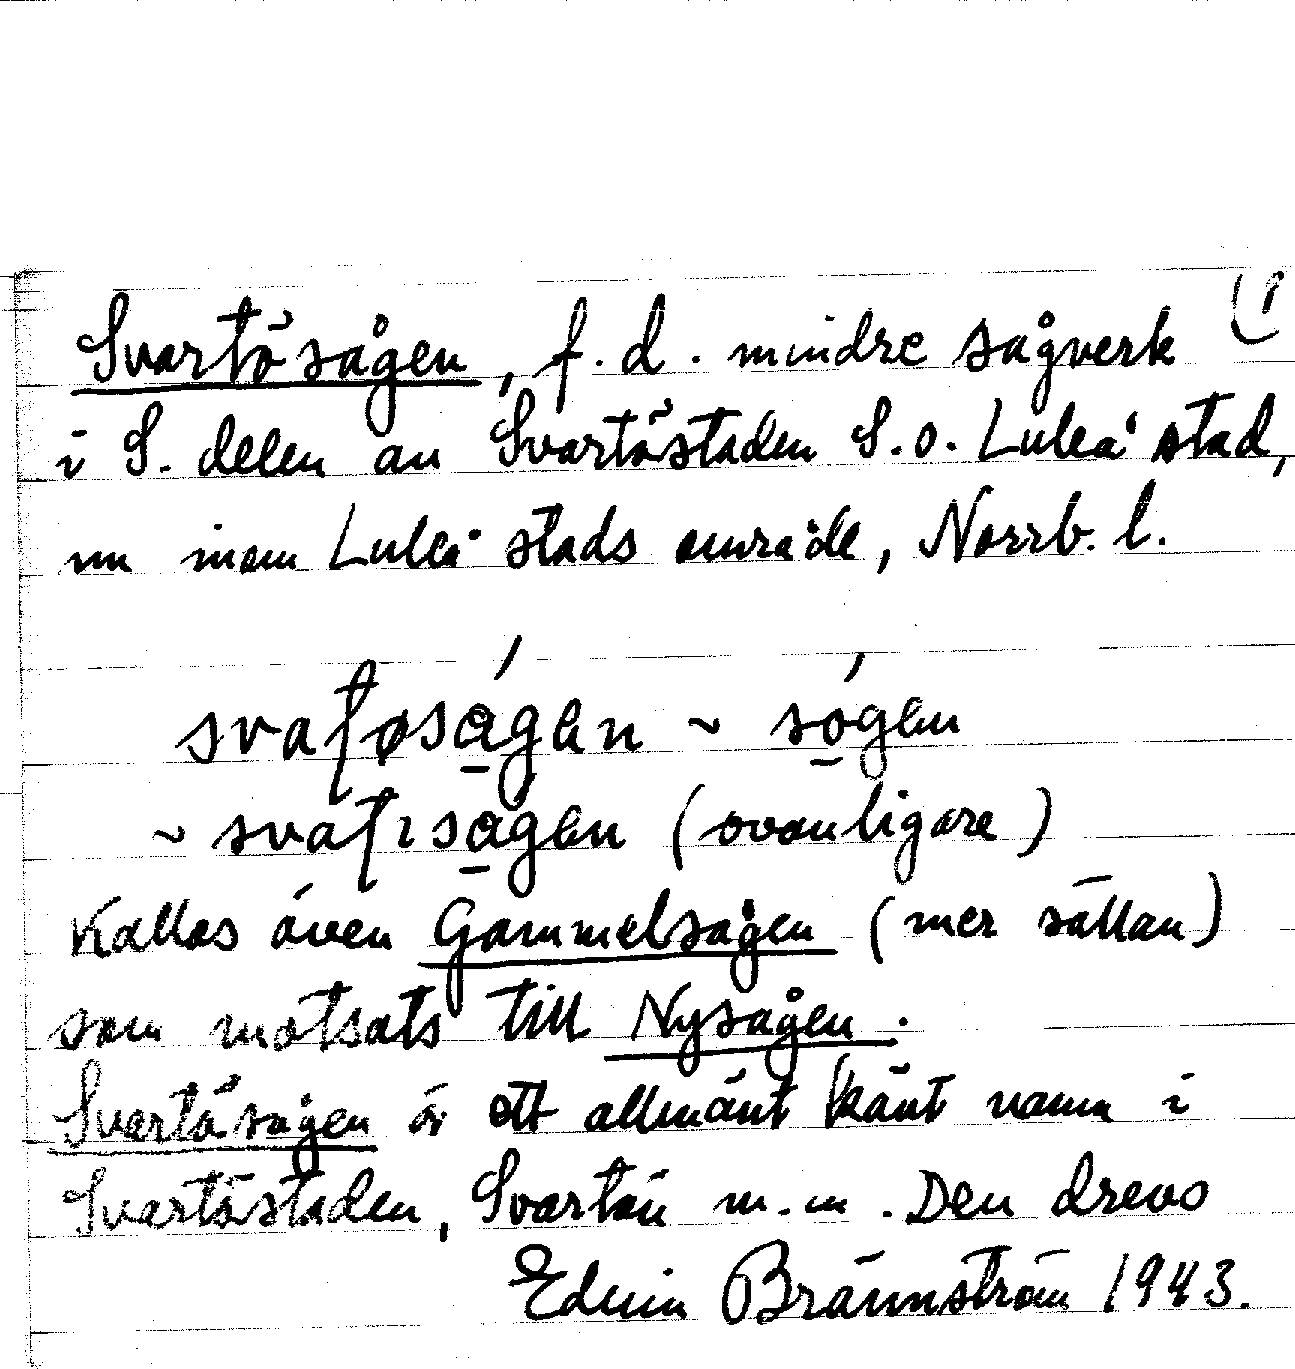 Svartösågen, f.d. mindre sågverk (1
i S. delen av Svartöstaden S.o. Luleå stad,
nu inom Luleå stads område, Norrb. l.
svaƫøságən ~ sógən
~ svaƫɩságən (ovanligare)
Kallas även Gammelsågen (mer sällan)
som motsats till Nysågen.
Svartösågen är ett allmänt känt namn i
Svartöstaden, Svartön m.m. Den drevs
Edvin Brännström 1943.